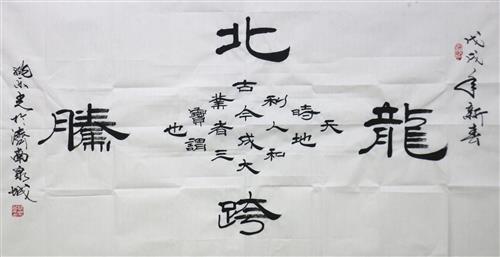 戊戌年新春
龍
北
跨
騰
天
時地
利人和
古今成大
業者三
寶謂
也
於濟南泉城